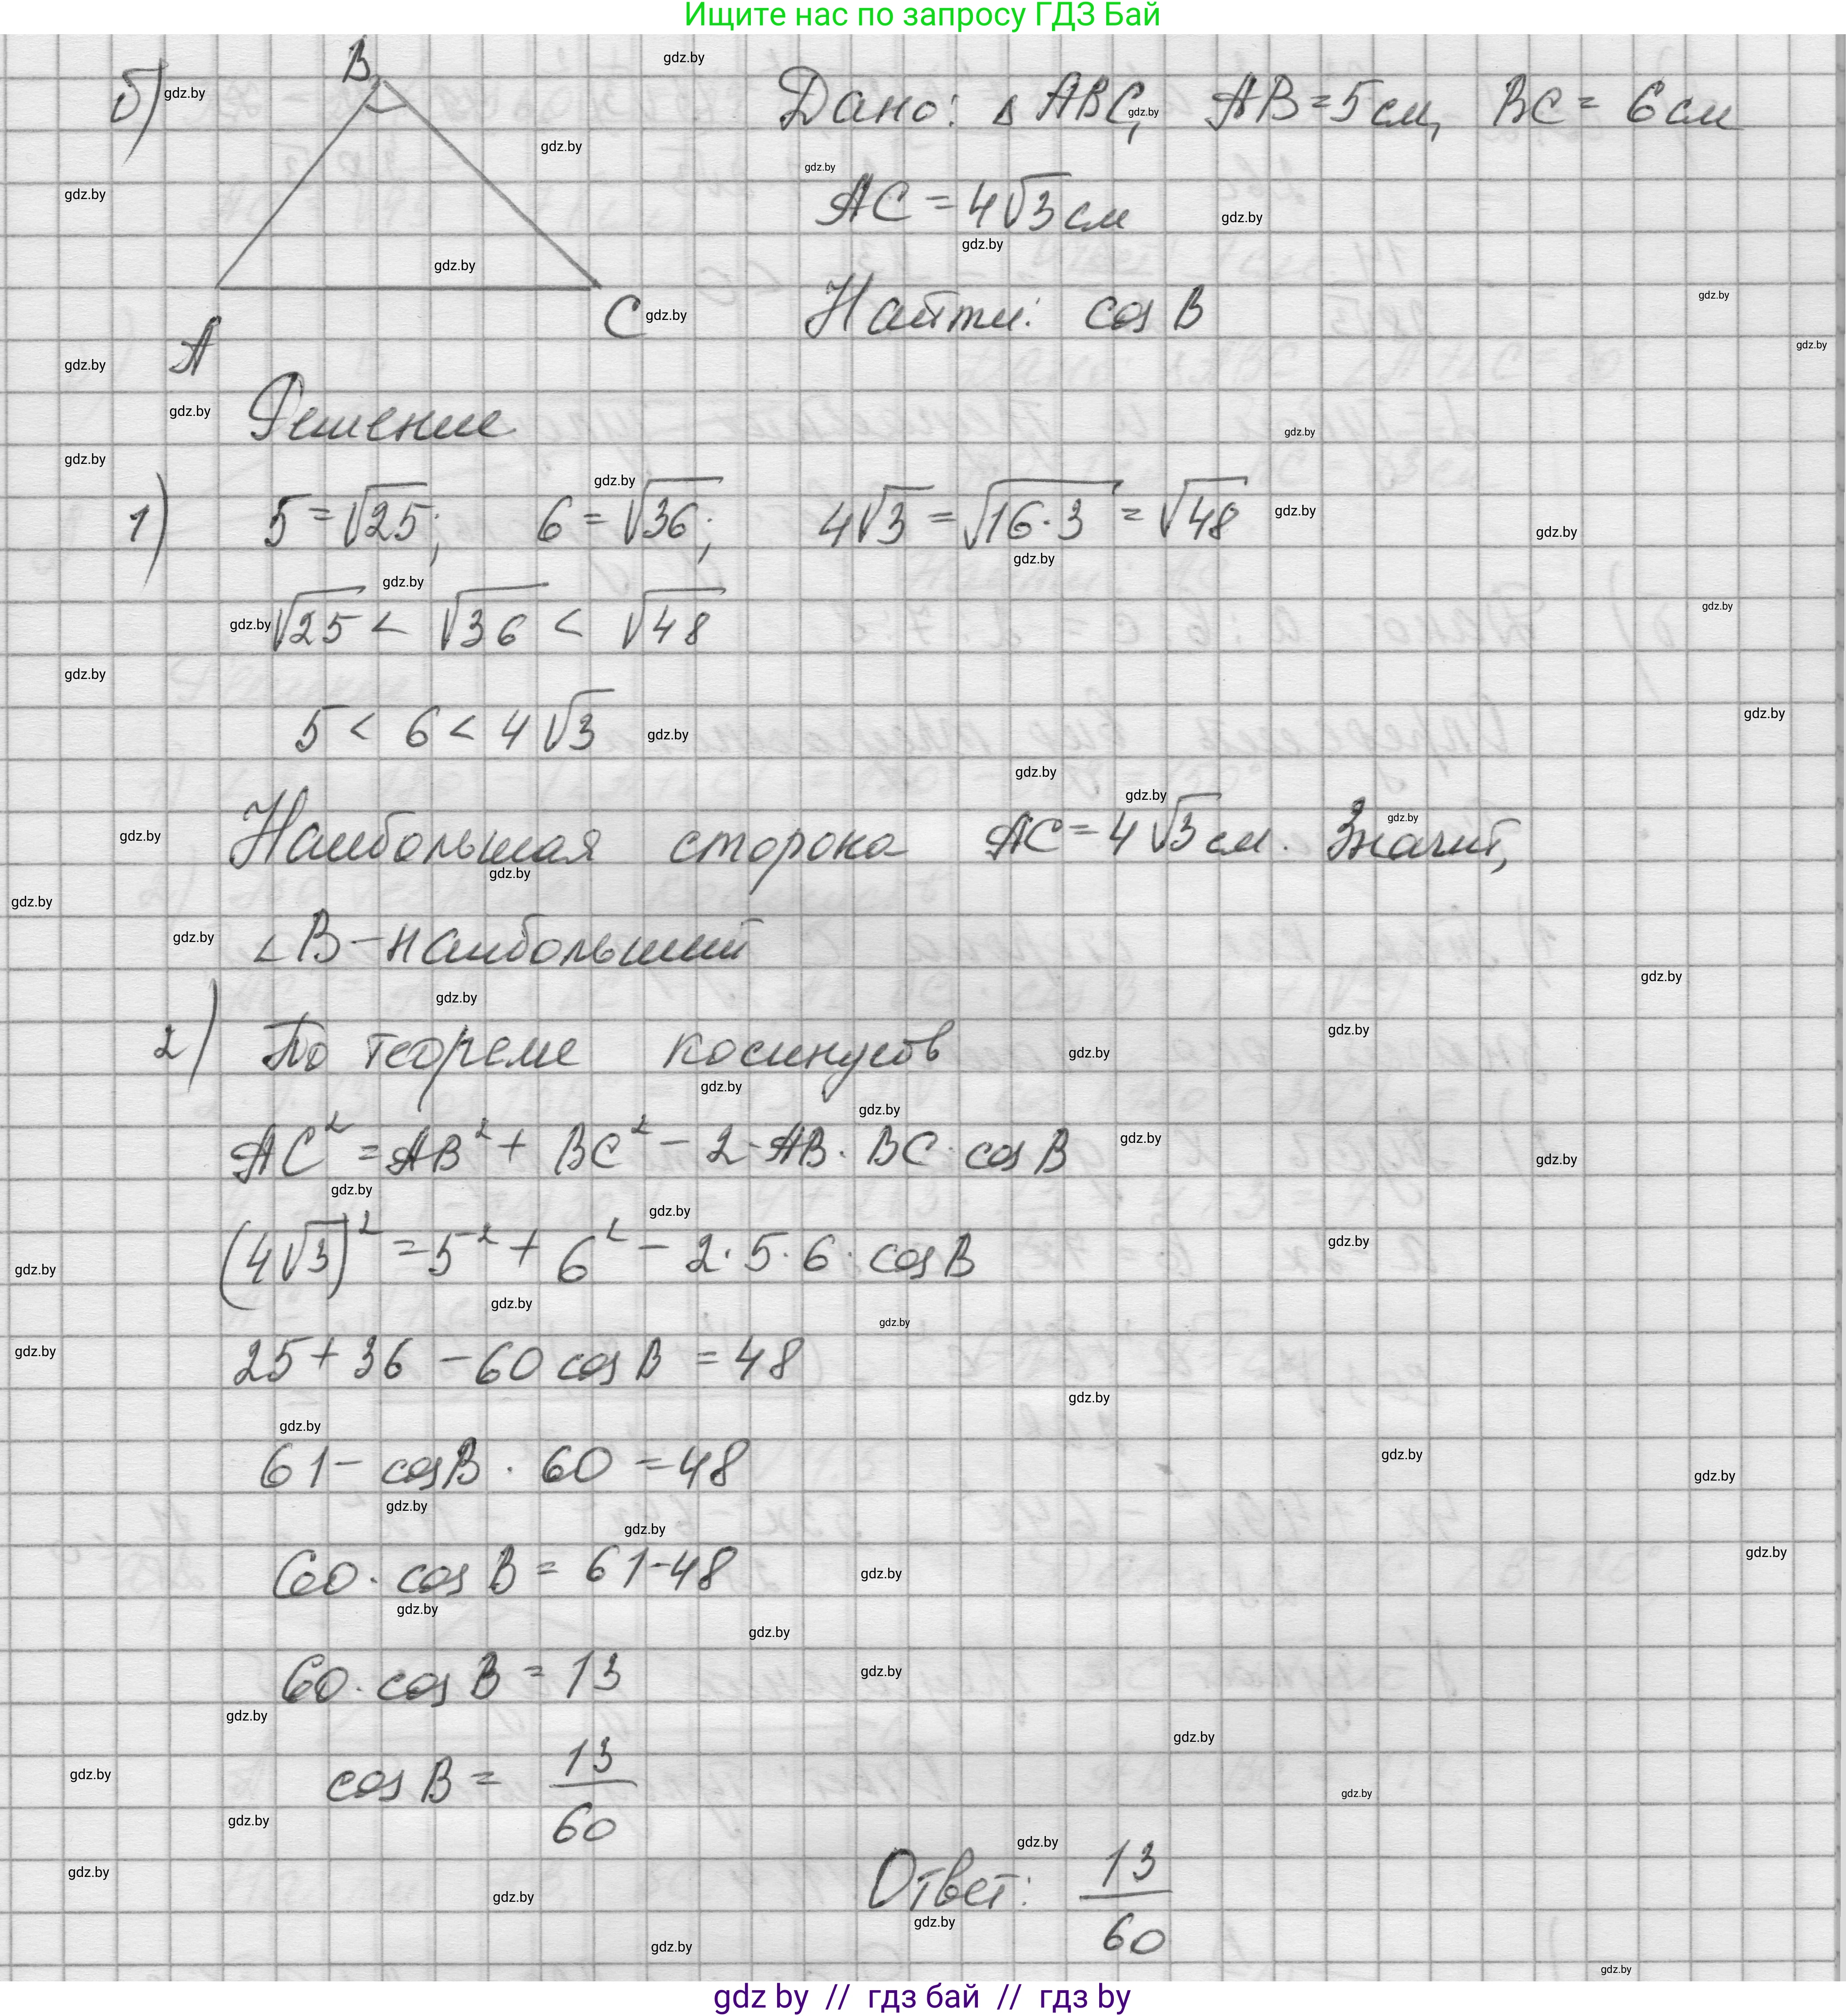 Ищите нас по запросу ГДЗ Бай
б)
B
A
C
Дано: △ ABC, AB = 5 см, BC = 6 см
AC = 4√3 см
Найти: cos B
Решение
1) 5 = √25; 6 = √36; 4√3 = √16·3 = √48
√25 < √36 < √48
5 < 6 < 4√3
Наибольшая сторона AC = 4√3 см. Значит,
∠B – наибольший
2) По теореме косинусов
AC² = AB² + BC² – 2·AB·BC·cos B
(4√3)² = 5² + 6² – 2·5·6·cos B
25 + 36 – 60 cos B = 48
61 – cos B · 60 = 48
60 · cos B = 61 – 48
60 · cos B = 13
cos B = 13/60
Ответ: 13/60
gdz by // гдз бай // гдз by